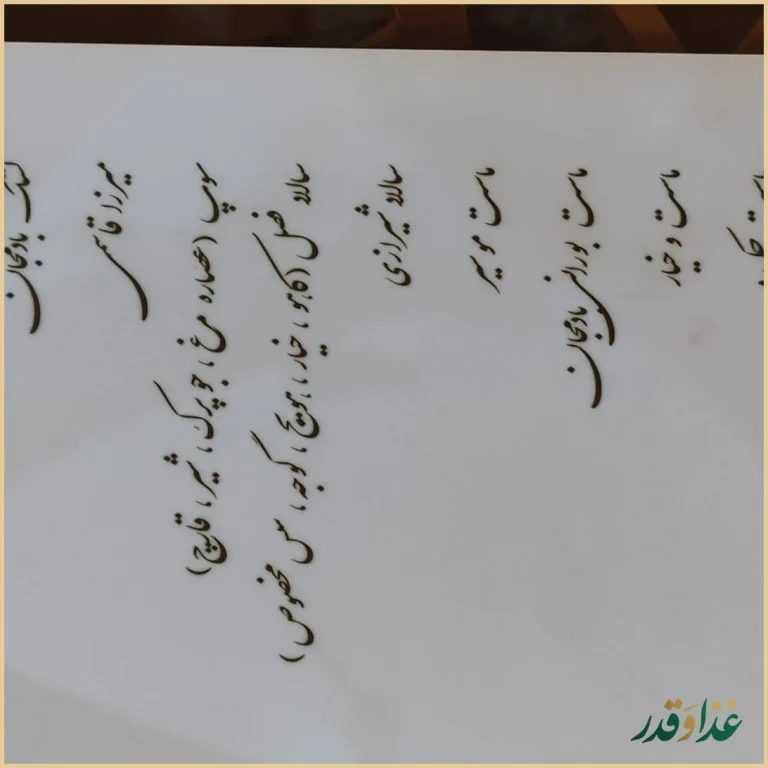 کشک بادمجان
میرزا قاسمی
سوپ (عصاره مرغ ، جو پرک ، شیر ، قارچ)
سالاد فصل (کاهو ، خیار ، هویج ، گوجه ، سس مخصوص)
سالاد شیرازی
ماست موسیر
ماست بورانی بادمجان
ماست و خیار
غذا و قدر